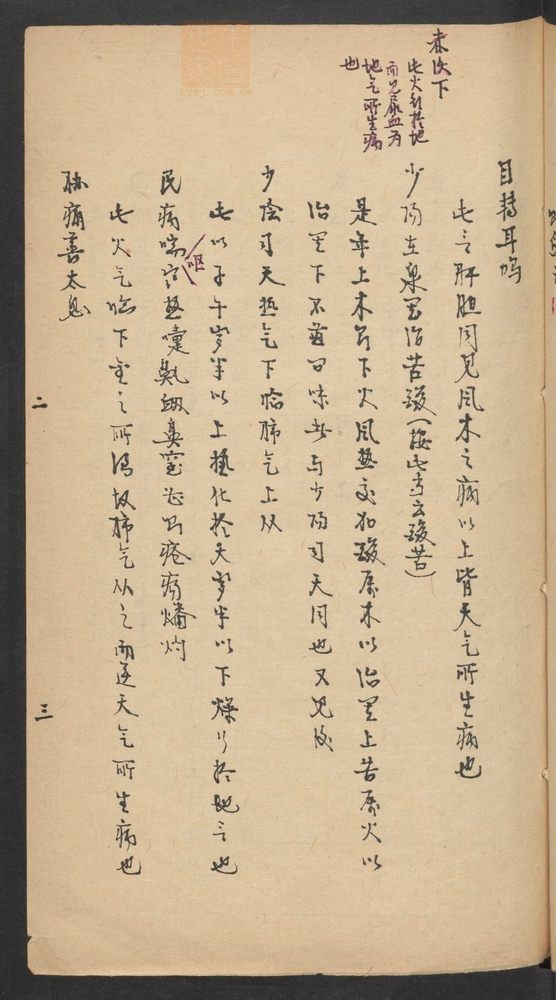 赤沃下
此火郁於地
而見尿血为
地气所生病
也
目转耳鸣
此言肝胆同見风木之病以上皆天气所生病也
少阳在泉其治苦酸(按此当云酸苦)
是年上木而下火风热交加酸属木以治其上苦属火以
治其下不旹曰味此与少阳司天同也又见後
少陰司天热气下临肺气上从
此以子午岁半以上热化於天岁半以下燥行於地言也
民病喘呕
寒热嚏鼽衄鼻窒甚则疮疡燔灼
此火气临下金之所溺故肺气从之而逆天气所生病也
胁痛善太息
二
三